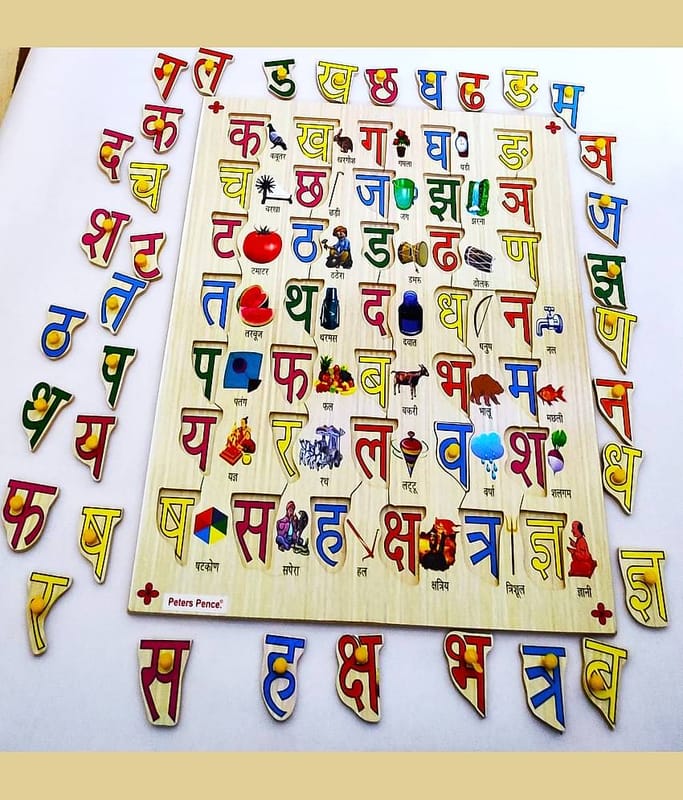 ग ल ड ख छ घ ढ ङ म
क ञ
द च ज
श ट झ
त ठ ण
प थ न
य ध
फ ष
र ज्ञ
क ख ग घ ङ
कबूतर खरगोश गमला घडी
च छ ज झ ञ
चरखा छडी जग झरना
ट ठ ड ढ ण
टमाटर ठठेरा डमरु ढोलक
त थ द ध न
तरबूज थरमस दवात धनुष नल
प फ ब भ म
पतंग फल बकरी भालू मछली
य र ल व श
यज्ञ रथ लट्टू वर्षा शलगम
ष स ह क्ष त्र ज्ञ
षटकोण सपेरा हल क्षत्रिय त्रिशूल ज्ञानी
Peters Pence
स ह क्ष भ त्र ब